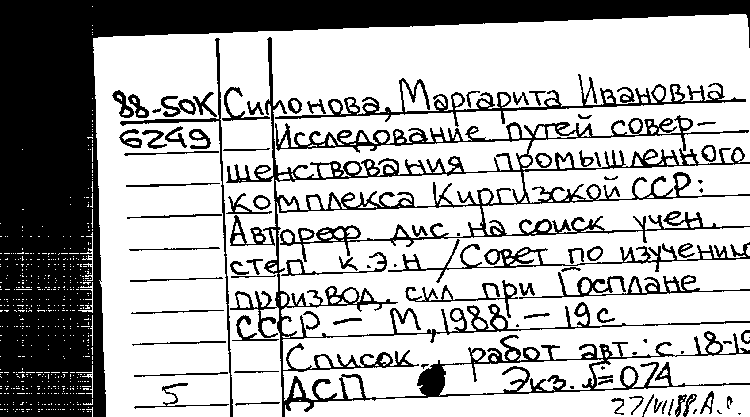 88-50К Симонова, Маргарита Ивановна.
6249 Исследование путей совер-
шенствования промышленного
комплекса Киргизской ССР:
Автореф. дис. на соиск учен.
степ. к.э.н /Совет по изучению
производ. сил при Госплане
СССР. – М, 1988. – 19 с.
Список работ авт.: с. 18-19
5 ДСП. Экз. №=074